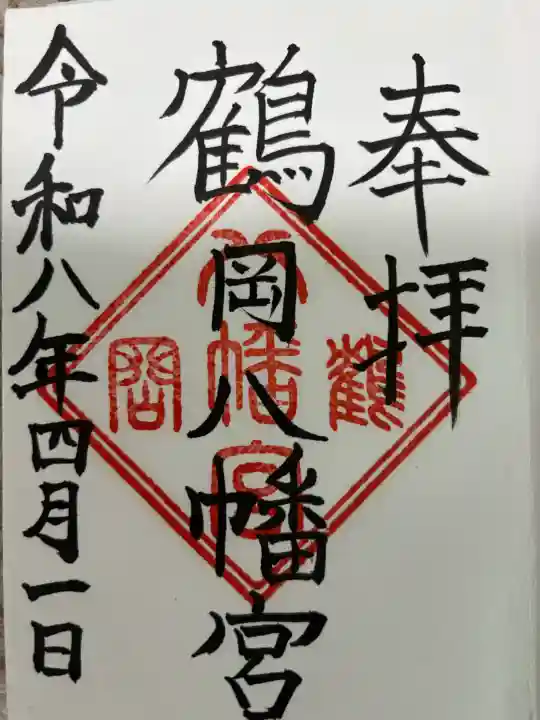 奉拝
鶴岡八幡宮
令和八年四月一日
鶴
八幡宮
岡